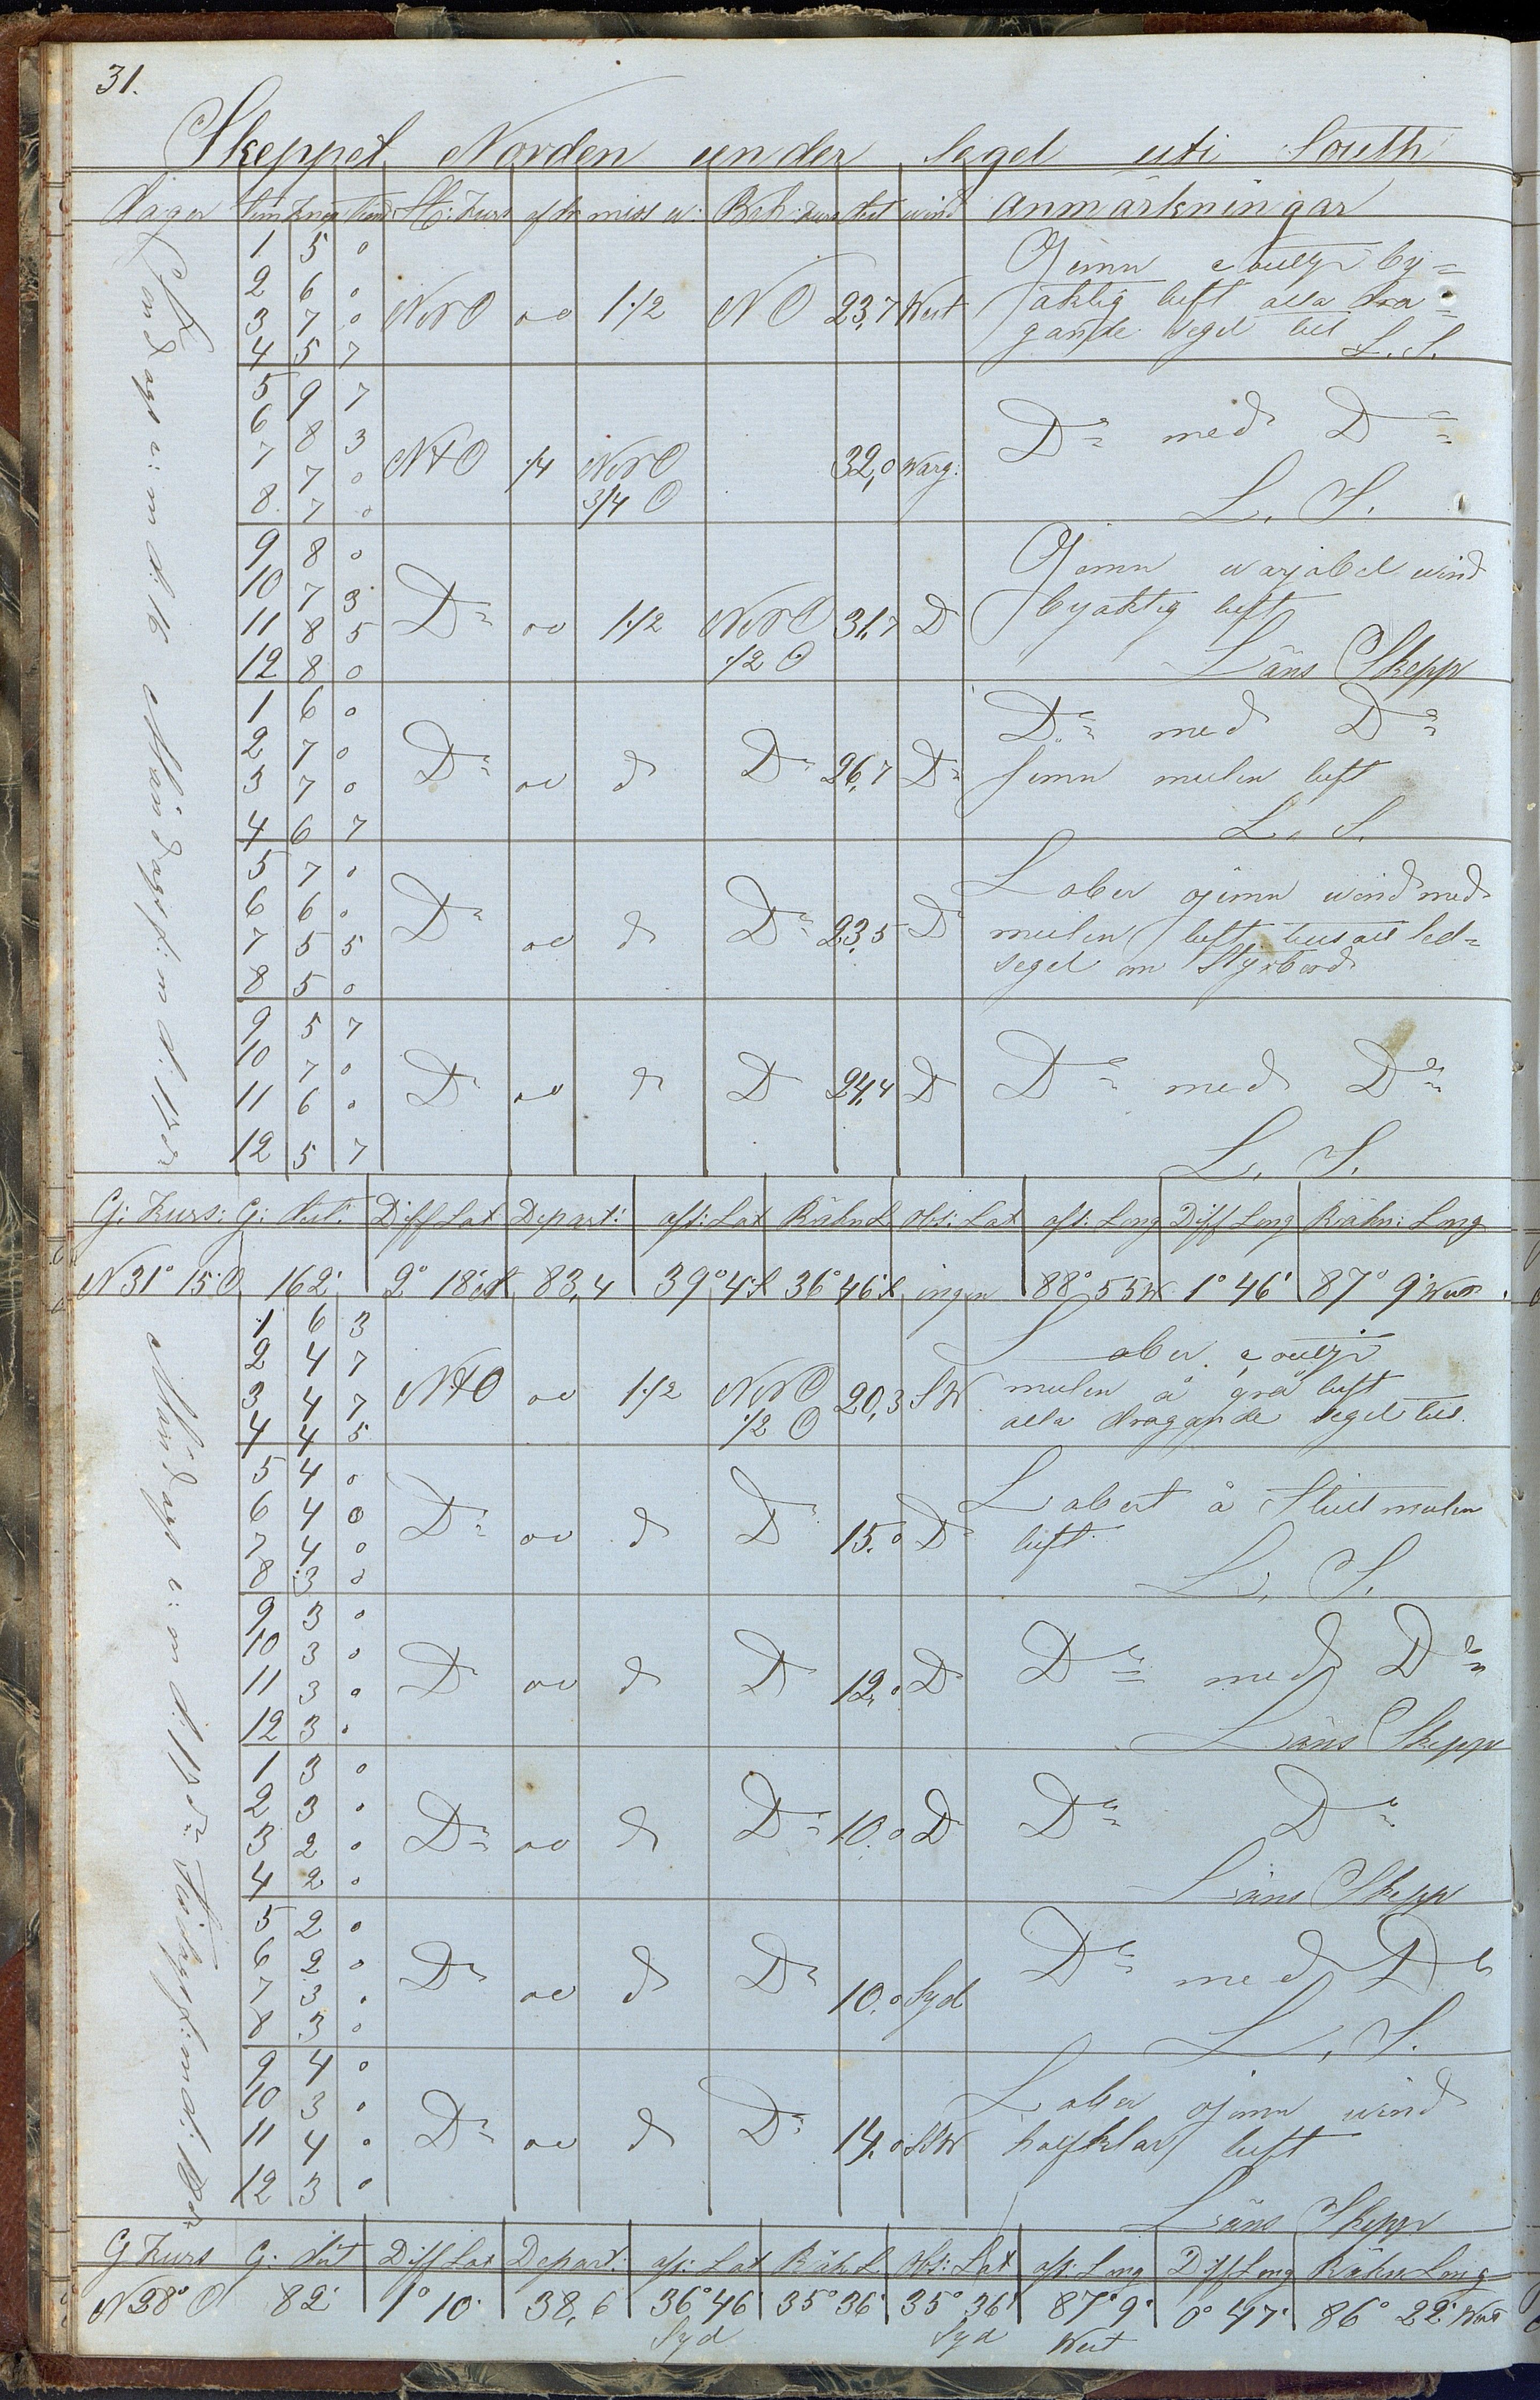 31.
Skeppet Norden under Segel uti South
Dagar tim knop St: Kurs afdr miss w: Beh: Kurs dist wind Anmärkningar
1 5 0
2 6 0
3 7 0 NNO oo 1/2 NO 23,7 West
4 5 7
Ojemn by=
aktig luft alla dra=
gande segel till L. S.
5 9 7
6 8 3
7 7 0 NtO 1/4 NNO 32,0 Warg:
8 7 0 3/4 O
Do med Do
L. S.
9 8 0
10 7 3
11 8 5 Do oo 1/2 NNO 31,7 D
12 8 0 1/2 O
Ojemn warjabel wind
byaktig luft
Läns Skepp
1 6 0
2 7 0
3 7 0 Do oo do Do 26,7 Do
4 6 7
Do med Do
jemn mulen luft
L. S.
5 7 0
6 6 0
7 5 5 Do oo do Do 23,5 D
8 5 0
Laber ojemn wind med
mulen luft led=
segel om Styrbord
9 5 7
10 7 0
11 6 0 D oo do D 24,4 D
12 5 7
Do med Do
L. S.
Söndag e: m d: 16 Måndag f: m d: 17de
G: Kurs: G: dist: Diff Lat Depart: aff: Lat Räkn L Obs: Lat aff: Long Diff Long Räkn: Long
N 31° 15' O 162' 2° 18' 83,4 39° 4' S 36° 46' S ingen 88° 55 W 1° 46' 87° 9' West
1 6 3
2 4 7
3 4 7 NtO oo 1/2 NNO 20,3 SW
4 4 5 1/2 O
Laber
mulen å grå luft
alla dragande segel till.
5 4 0
6 4 0
7 4 0 Do oo do D 15,0 D
8 3 0
Labert å Stilt mulen
luft
L. S.
9 3 0
10 3 0
11 3 0 D oo do D 12,0 D
12 3 0
Do med Do
Läns Skepp
1 3 0
2 3 0
3 2 0 Do oo do Do 10,0 D
4 2 0
Do Do
Läns Skepp
5 2 0
6 2 0
7 3 0 Do oo do Do 10,0 Syd
8 3 0
Do med Do
L. S.
9 4 0
10 3 0
11 4 0 Do oo do Do 14,0 SSW
12 3 0
Laber ojemn wind
halfklar luft
Läns Skepp
Måndag e: m d: 17de Tisdag f: m d: 18de
G Kurs G: dist Diff Lat Depart: aff: Lat Räk L Obs: Lat aff: Long Diff Long Räkn Long
N 28° O 82' 1° 10' 38,6 36° 46' 35° 36' 35° 36' 87° 9' 0° 47' 86° 22' West
Syd Syd West